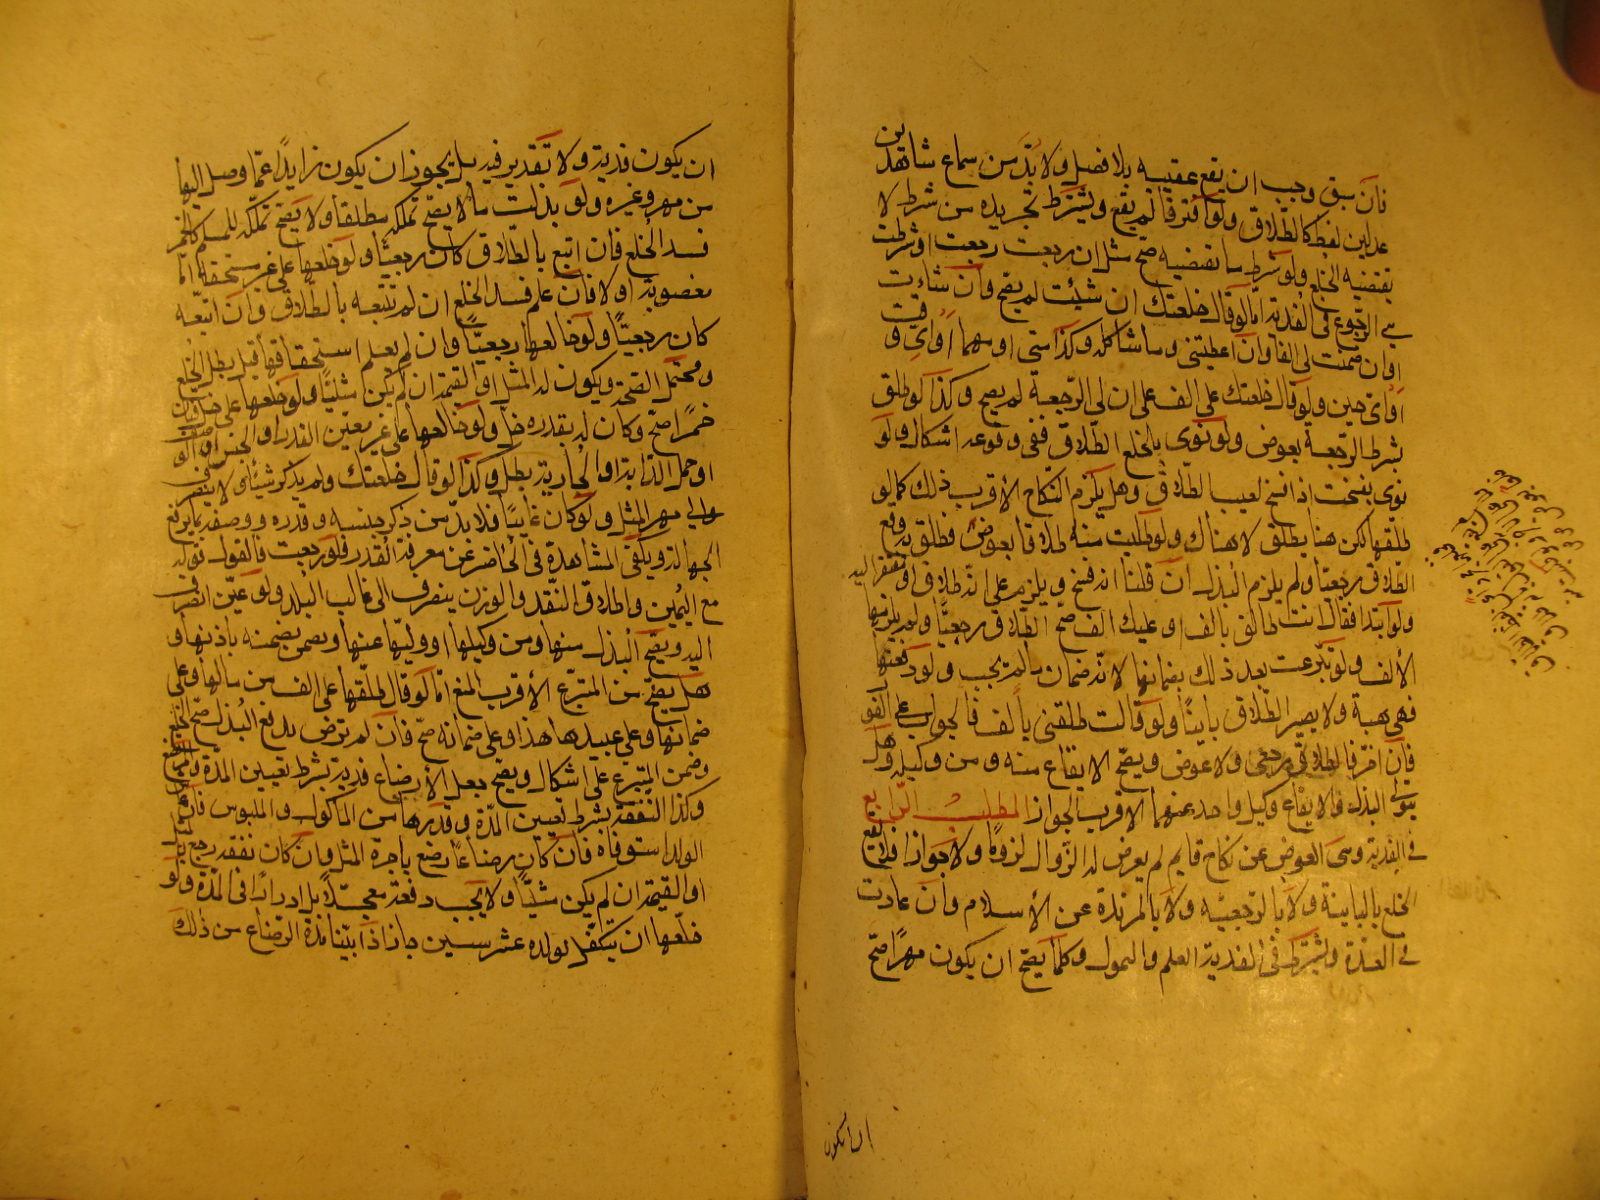 فان سبق وجب ان يقع عقيبه بلا فصل ولا بدّ من سماع شاهدين
عدلين لفظه كالطّلاق ولو افترقا لم يقع ويشترط تجريده من شرط لا
يقتضيه الخلع ولو شرط ما يقتضيه صحّ مثل ان رجعت رجعت او شرطت
هي الرّجوع في الفدية امّا لو قال خلعتك ان شئت لم يصحّ وان شاءت
او ان ضمنت لي الفا وان اعطيتني وما شاكله وكذا متى او مهما او اىّ وقت
او اىّ حين ولو قال خلعتك على الف على ان لي الرّجعة لم يصح وكذا لو طلق
بشرط الرّجعة بعوض ولو نوى بالخلع الطّلاق ففي وقوعه اشكال ولو
نوى بفسخت اذا فسخ لعيب الطّلاق وهل يلزم النّكاح الأقرب ذلك كما لو
طلّقها لكن هنا يطلق لا هناك ولو طلبت منه طلاقا بعوض فطلق به وقع
الطّلاق رجعيّا ولم يلزم البذل ان قلنا انه فسخ ويلزم على انّه طلاق او يفتقر اليه
ولو ابتدا فقال انت طالق بالف او عليك الف صحّ الطّلاق رجعيّا ولم يلزمها
الألف ولو تبرّعت بعد ذلك بضمانها لانّه ضمان ما لم يجب ولو دفعتها
فهي هبة ولا يصير الطّلاق باينًا ولو قالت طلقني بألف فالجواب على الفور
فان اخّر فالطلاق رجعي ولا عوض ويصحّ الايقاع منه ومن وكيله وهل
يتولى البذل والايقاع وكيل واحد عنهما الاقرب الجواز المطلب الرّابع
في الفدية وهي العوض عن نكاح قايم لم يعرض له الزّوال لزومًا ولا جوازا فلا يقع
الخلع بالباينة ولا بالرّجعيّة ولا بالمرتدة عن الأسلام وان عادت
في العدّة ويشترط في الفدية العلم والتمول وكلّما يصح ان يكون مهرًا صحّ
ان يكون
ان يكون فدية ولا تقدير فيه بل يجوز ان يكون زايدًا عمّا وصل اليها
من مهر وغيره ولو بذلت ما لا يصحّ تملكه مطلقا او لا يصحّ تملّكه للمسلم كالخمر
فسد الخلع فان اتبع بالطّلاق كان رجعيّا ولو خلعها على عين مستحقة امّا
مغصوبة او لا فان علم فسد الخلع ان لم يتبعه بالطّلاق وان اتبعه
كان رجعيّا ولو خالعها رجعيّا وان لم يعلم استحقاقها قيل بطل الخلع
ويحتمل الصّحّة ويكون له المثل او القيمة ان لم يكن مثليّا ولو خلعها على خل فبان
خمرًا صحّ وكان له بقدره خلّ ولو خالعها على غير معيّن القدر او الجنس او الوصف
او حمل الدّابة او الجارية بطل وكذا لو قال خلعتك ولم يذكر شيئا ولا ينصرف
الى مهر المثل ولو كان غايبًا فلا بدّ من ذكر جنسه وقدره ووصفه بما يرفع
الجهالة ويكفي المشاهدة في الحاضر عن معرفة القدر فلو رجعت فالقول قوله
مع اليمين واطلاق النّقد والوزن ينصرف الى غالب البلد ولو عيّن انصرف
اليه ويصحّ البذل منها ومن وكيلها او وليّها عنها وممن يضمنه باذنها و
هل يصحّ من المتبرّع الأقرب المنع امّا لو قال طلّقها على الف من مالها وعلى
ضمانها وعلى عبيدها هذا وعلى ضمانه صحّ فان لم ترض بدفع البذل صحّ الخلع
وضمن المتبرع على اشكال ويصحّ جعل الأرضاع فدية بشرط تعيين المدّة والمرتضع
وكذا النّفقة بشرط تعيين المدّة وقدرها من المأكول والملبوس فان عاش
الولد استوفاه فان كان رضاعًا رجع بأجرة المثل وان كان نفقة رجع بالمثل
او القيمة ان لم يكن مثليّا ولا يجب دفعة معجّلا بل ادرارًا في المدّة ولو
خلعها ان يتكفّل بولده عشر سنين جاز اذا بيّنا مدّة الرّضاع من ذلك